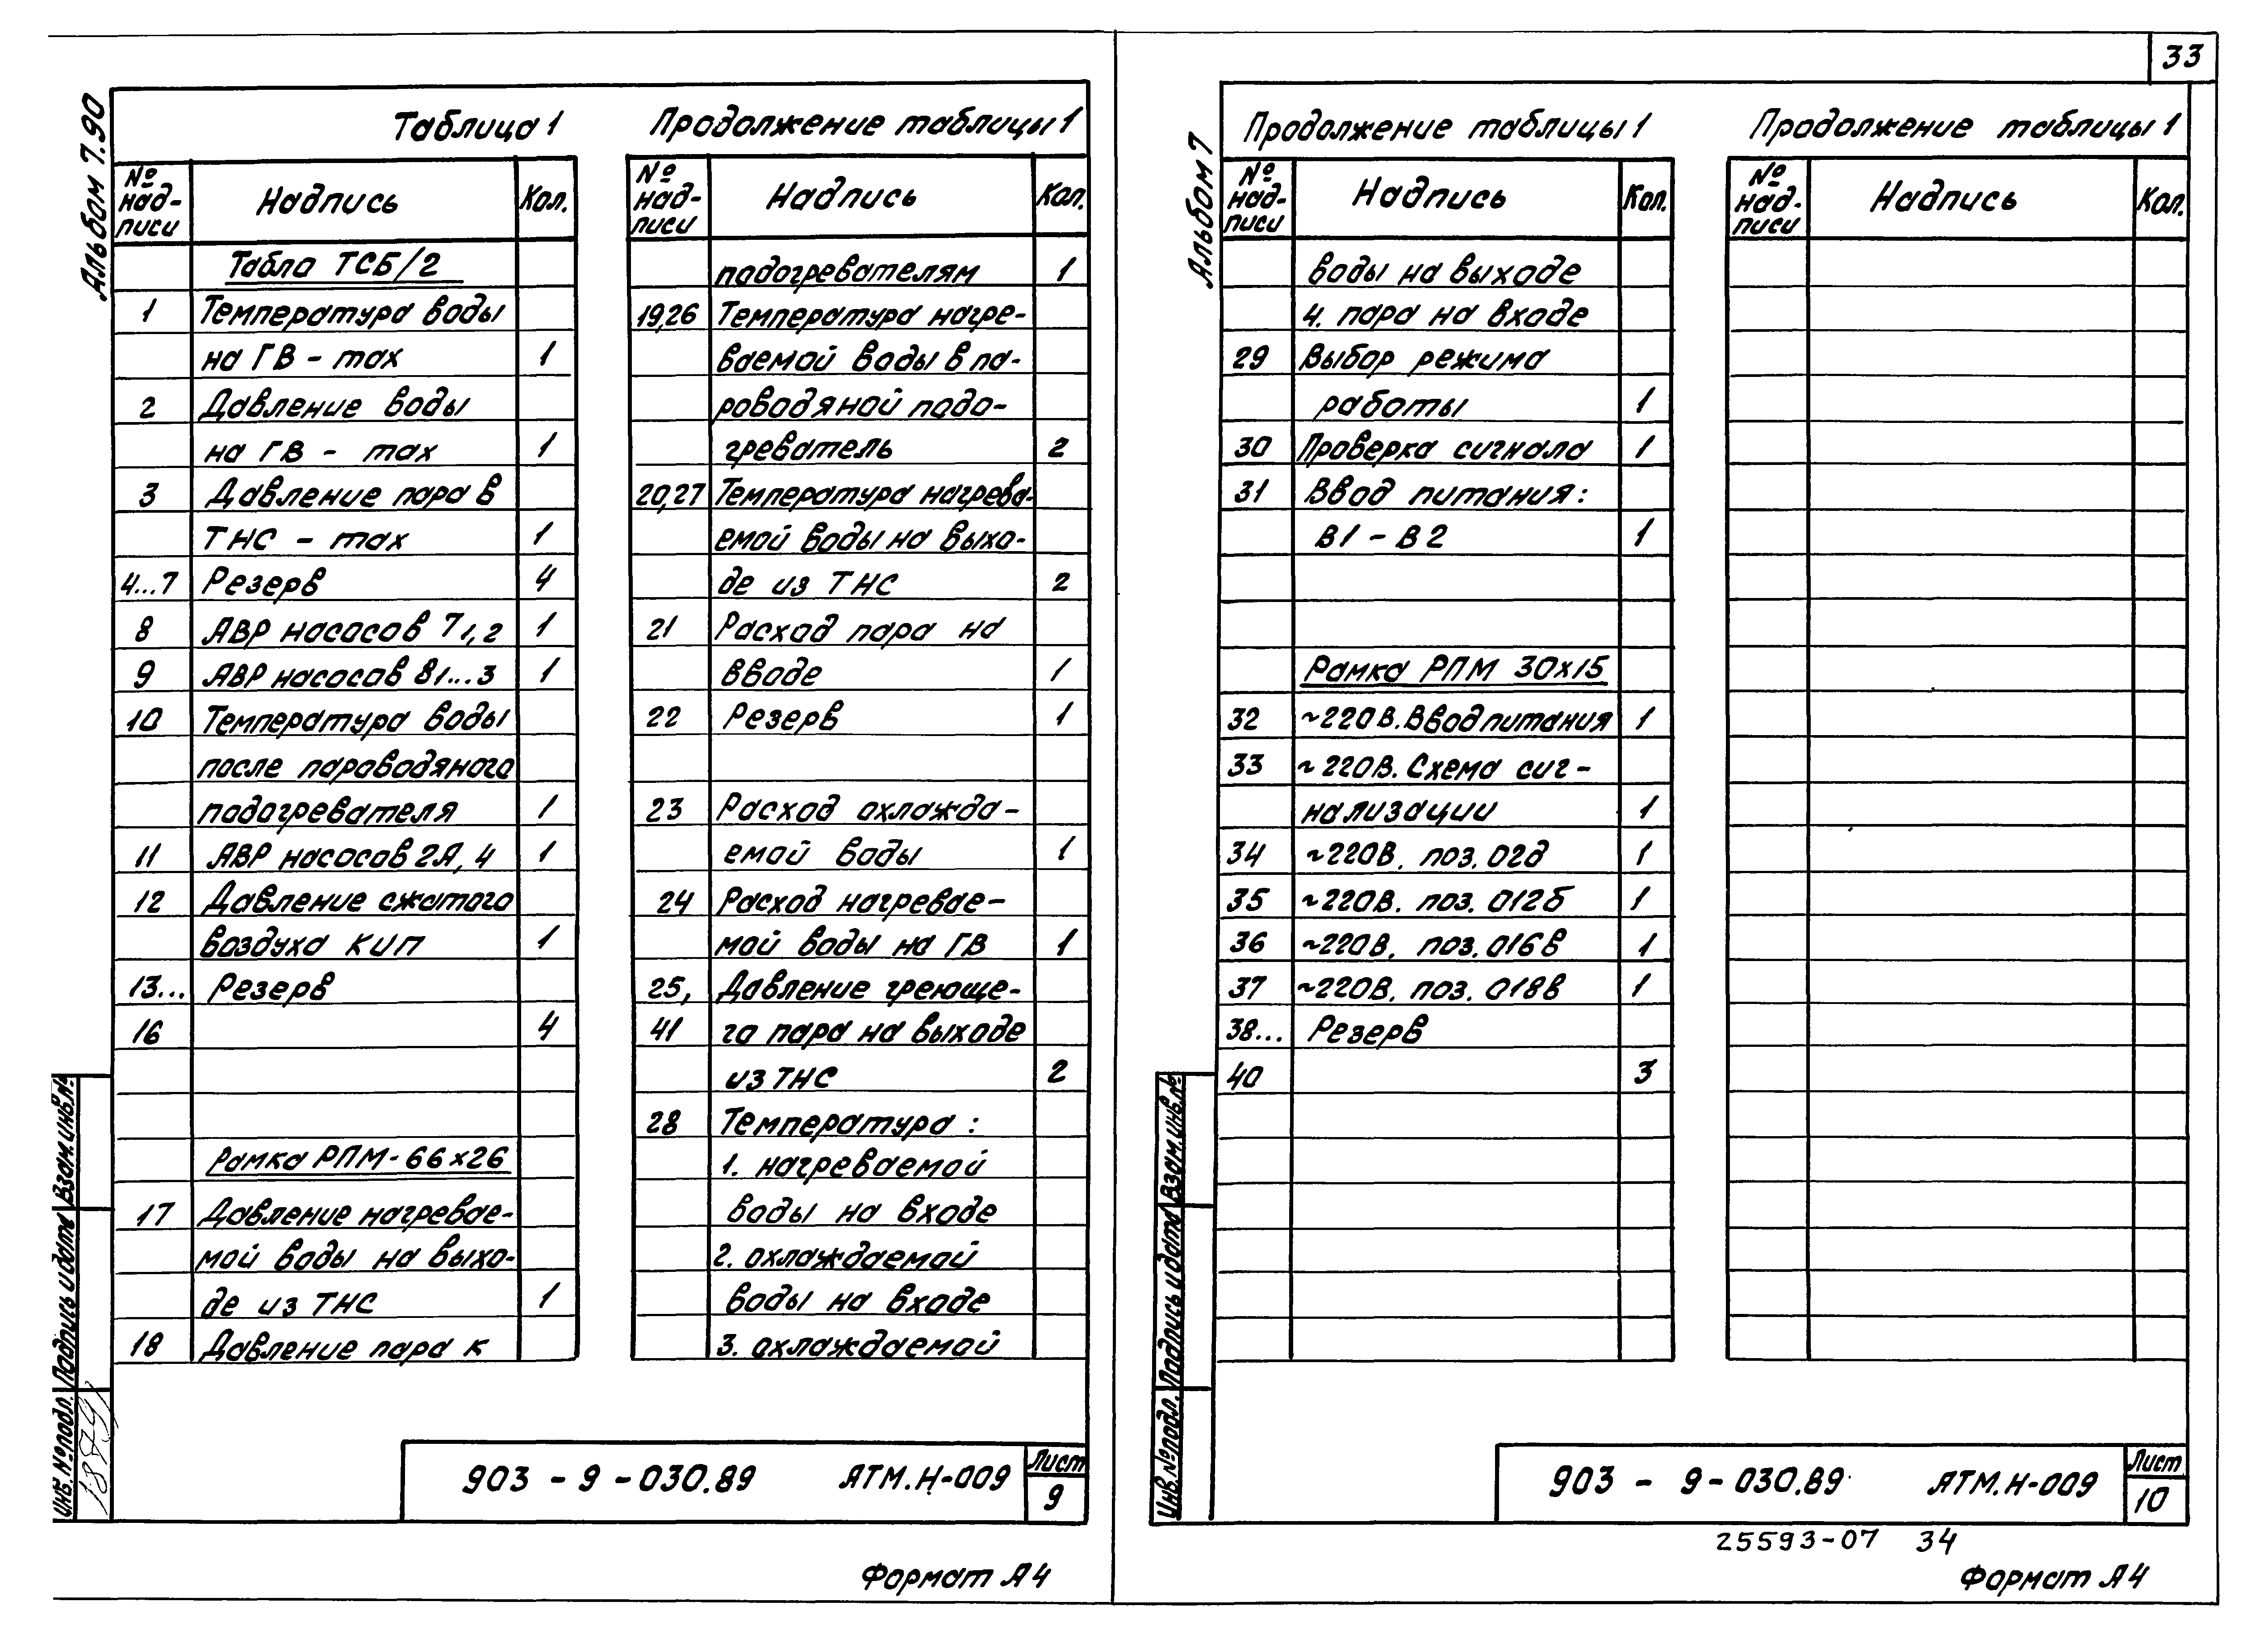 33
Альбом 7.90
Таблица 1
№ надписи Надпись Кол.
Табло ТСБ/2
1 Температура воды
на ГВ - max 1
2 Давление воды
на ГВ - max 1
3 Давление пара в
ТНС - max 1
4...7 Резерв 4
8 АВР насосов 71,2 1
9 АВР насосов 81...3 1
10 Температура воды
после пароводяного
подогревателя 1
11 АВР насосов 2А, 4 1
12 Давление сжатого
воздуха КИП 1
13... Резерв
16 4
Рамка РПМ-66×26
17 Давление нагревае-
мой воды на выхо-
де из ТНС 1
18 Давление пара к
Продолжение таблицы 1
№ надписи Надпись Кол.
подогревателям 1
19,26 Температура нагре-
ваемой воды в па-
роводяной подо-
греватель 2
20,27 Температура нагрева-
емой воды на выхо-
де из ТНС 2
21 Расход пара на
вводе 1
22 Резерв 1
23 Расход охлажда-
емой воды 1
24 Расход нагревае-
мой воды на ГВ 1
25, Давление греюще-
41 го пара на выходе
из ТНС 2
28 Температура :
1. нагреваемой
воды на входе
2. охлаждаемой
воды на входе
3. охлаждаемой
Инв. № подл. Подпись и дата Взам. инв. №
903 - 9 - 030.89 АТМ.Н-009
Лист
9
Формат А4
Альбом 7
Продолжение таблицы 1
№ надписи Надпись Кол.
воды на выходе
4. пара на входе
29 Выбор режима
работы 1
30 Проверка сигнала 1
31 Ввод питания :
В1 - В2 1
Рамка РПМ 30×15
32 ~220В. Ввод питания 1
33 ~ 220В. Схема сиг-
нализации 1
34 ~220В. поз. 02д 1
35 ~220В. поз. 012б 1
36 ~220В. поз. 016в 1
37 ~220В. поз. 018в 1
38... Резерв
40 3
Продолжение таблицы 1
№ надписи Надпись Кол.
Инв. № подл. Подпись и дата Взам. инв. №
903 - 9 - 030.89 АТМ.Н-009
Лист
10
25593-07 34
Формат А4